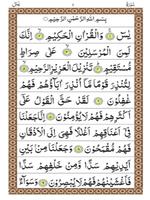 بِسْمِ اللّٰهِ الرَّحْمٰنِ الرَّحِيْمِ
يٰسٓ ۚ وَالْقُرْاٰنِ الْحَكِيْمِ ۙ اِنَّكَ
لَمِنَ الْمُرْسَلِيْنَ ۙ عَلٰى صِرَاطٍ
مُّسْتَقِيْمٍ ؕ تَنْزِيْلَ الْعَزِيْزِ الرَّحِيْمِ ۙ
لِتُنْذِرَ قَوْمًا مَّاۤ اُنْذِرَ اٰبَآؤُهُمْ فَهُمْ
غٰفِلُوْنَ لَقَدْ حَقَّ الْقَوْلُ عَلٰٓى
اَكْثَرِهِمْ فَهُمْ لَا يُؤْمِنُوْنَ اِنَّا جَعَلْنَا
فِيْۤ اَعْنَاقِهِمْ اَغْلٰلًا فَهِيَ اِلَى الْاَذْقَانِ
فَهُمْ مُّقْمَحُوْنَ وَجَعَلْنَا مِنْۢ بَيْنِ
اَيْدِيْهِمْ سَدًّا وَّمِنْ خَلْفِهِمْ سَدًّا
فَاَغْشَيْنٰهُمْ فَهُمْ لَا يُبْصِرُوْنَ وَسَوَآءٌ